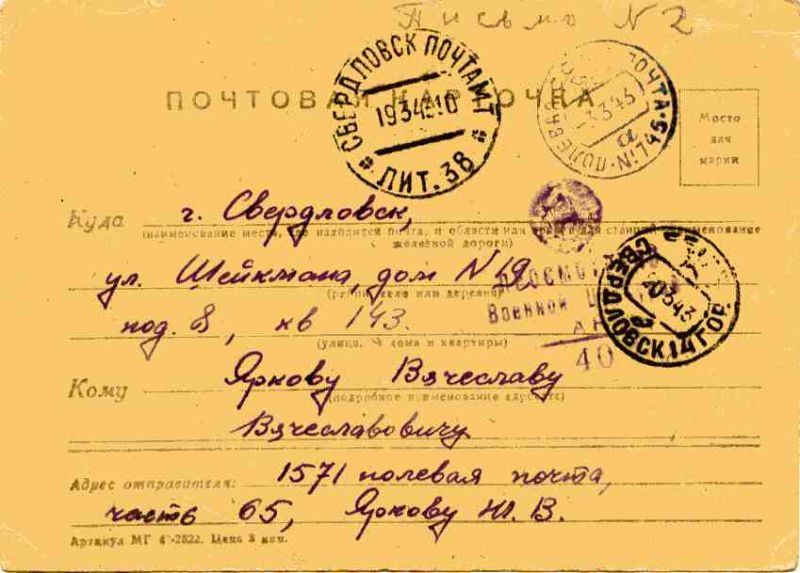 Письмо N 2
ПОЧТОВАЯ КАРТОЧКА
СВЕРДЛОВСК ПОЧТАМТ
19343.10
* ЛИТ. 38 *
ПОЧТА
3343
а
ПОЛЕВАЯ
N°745
Место
для
марки
Куда г. Свердловск,
(наименование места, где находится почта, и области или для станций наименование
железной дороги)
ул. Шейкмана, дом N 19
или деревни)
под. 8, кв 143.
(улица, № дома и квартиры)
Военной
40
СВЕРДЛОВСК 14 ГОР.
20343
Кому Яркову Вячеславу
(подробное наименование адресата)
Вячеславовичу
Адрес отправителя: 1571 полевая почта,
часть 65, Яркову Ю. В.
Артикул МГ 4-2822. Цена 3 коп.